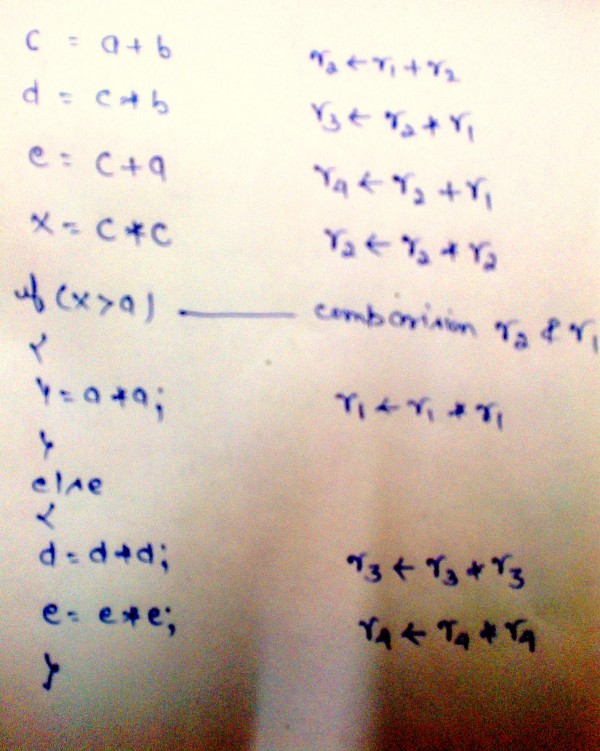 c = a + b r₂ ← r₁ + r₂
d = c * b r₃ ← r₂ * r₁
e = c + a r₄ ← r₂ + r₁
x = c * c r₂ ← r₂ * r₂
if (x > a) ——— comparision r₂ & r₁
{
y = a * a; r₁ ← r₁ * r₁
}
else
{
d = d * d; r₃ ← r₃ * r₃
e = e * e; r₄ ← r₄ * r₄
}